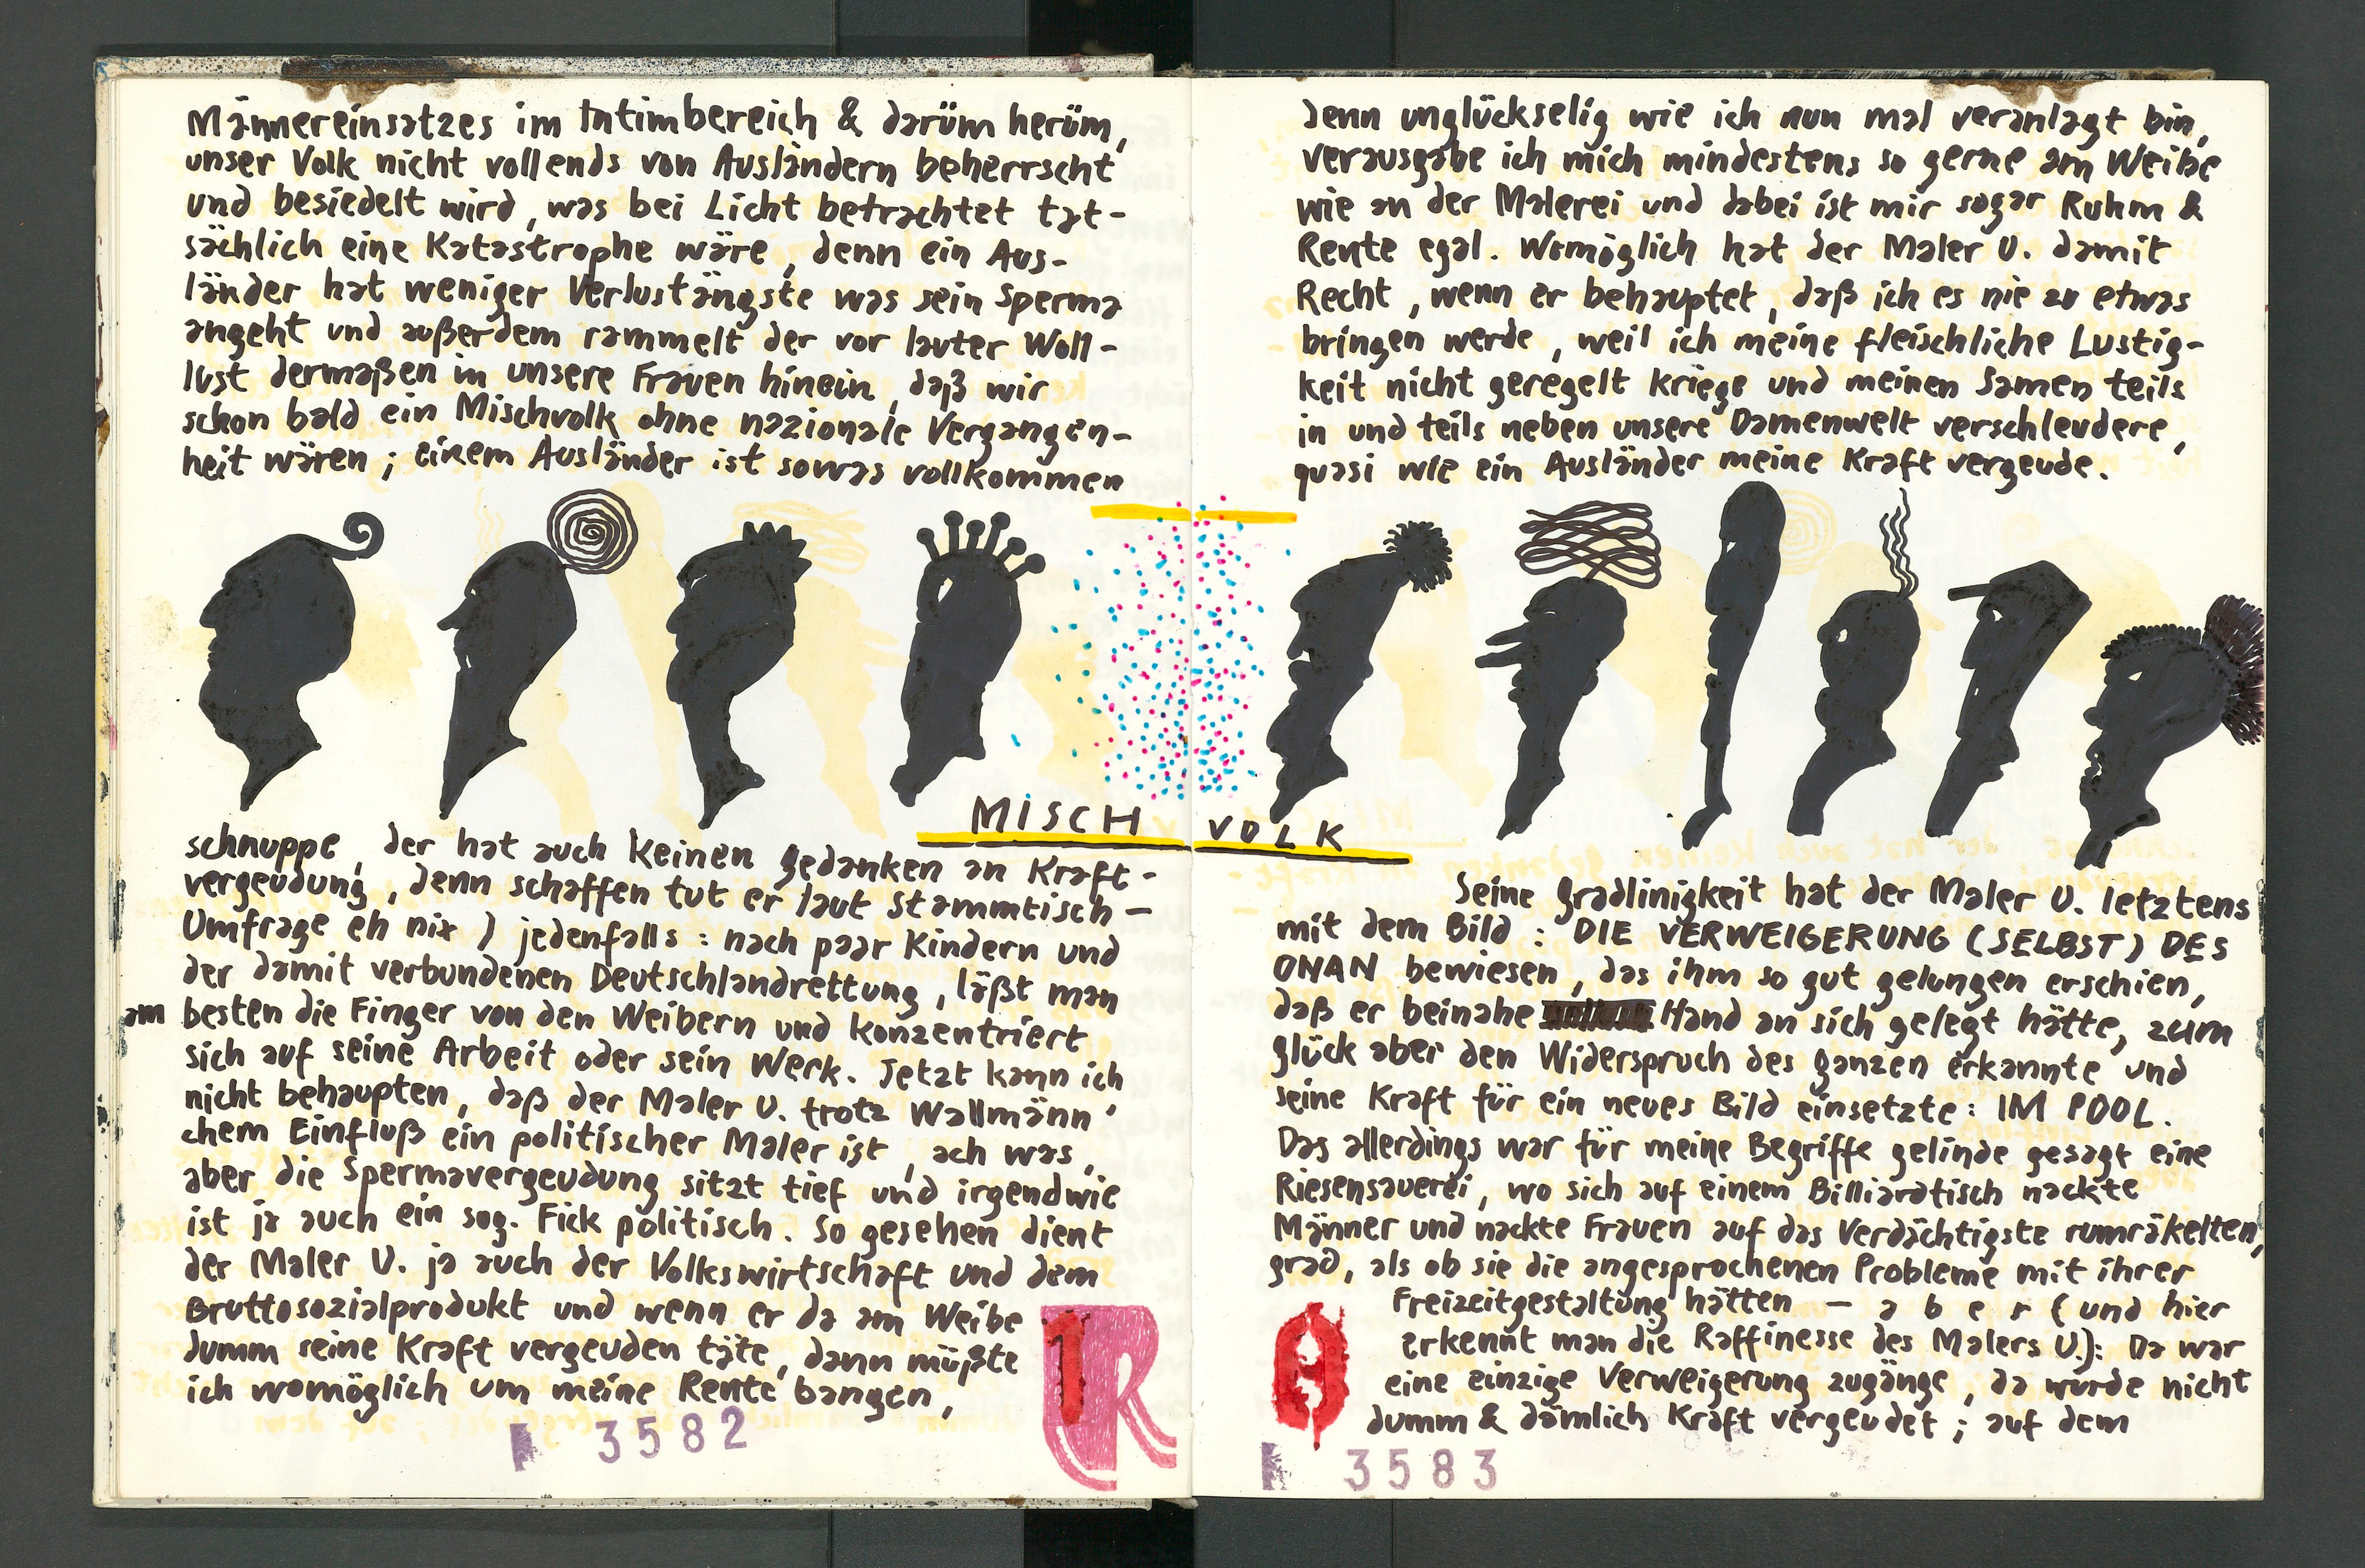 Männereinsatzes im Intimbereich & darüm herüm,
unser Volk nicht vollends von Ausländern beherrscht
und besiedelt wird, was bei Licht betrachtet tat-
sächlich eine Katastrophe wäre, denn ein Aus-
länder hat weniger Verlustängste was sein Sperma
angeht und außerdem rammelt der vor lauter Woll-
lust dermaßen in unsere Frauen hinein, daß wir
schon bald ein Mischvolk ohne nazionale Vergangen-
heit wären; einem Ausländer ist sowas vollkommen
MISCH
schnuppe, der hat auch keinen gedanken an Kraft-
vergeudung, denn schaffen tut er laut Stammtisch-
Umfrage eh nix) jedenfalls: nach paar Kindern und
der damit verbundenen Deutschlandrettung, läßt man
am besten die Finger von den Weibern und konzentriert
sich auf seine Arbeit oder sein Werk. Jetzt kann ich
nicht behaupten, daß der Maler U. trotz Wallmänn'
chem Einfluß ein politischer Maler ist, ach was,
aber die Spermavergeudung sitzt tief und irgendwie
ist ja auch ein sog. Fick politisch. So gesehen dient
der Maler U. ja auch der Volkswirtschaft und dem
Bruttosozialprodukt und wenn er da am Weibe
dumm seine Kraft vergeuden täte, dann müßte
ich womöglich um meine Rente bangen,
3582
denn unglückselig wie ich nun mal veranlagt bin,
verausgabe ich mich mindestens so gerne am Weibe
wie an der Malerei und dabei ist mir sogar Ruhm &
Rente egal. Womöglich hat der Maler U. damit
Recht, wenn er behauptet, daß ich es nie zu etwas
bringen werde, weil ich meine fleischliche Lustig-
keit nicht geregelt kriege und meinen Samen teils
in und teils neben unsere Damenwelt verschleudere,
quasi wie ein Ausländer meine Kraft vergeude.
VOLK
Seine gradlinigkeit hat der Maler U. letztens
mit dem Bild: DIE VERWEIGERUNG (SELBST) DES
ONAN bewiesen, das ihm so gut gelungen erschien,
daß er beinahe Hand an sich gelegt hätte, zum
glück aber den Widerspruch des ganzen erkannte und
seine Kraft für ein neues Bild einsetzte: IM POOL.
Das allerdings war für meine Begriffe gelinde gesagt eine
Riesensauerei, wo sich auf einem Billiardtisch nackte
Männer und nackte Frauen auf das Verdächtigste rumräkelten,
grad, als ob sie die angesprochenen Probleme mit ihrer
Freizeitgestaltung hätten – a b e r (und hier
erkennt man die Raffinesse des Malers U.): Da war
eine einzige Verweigerung zugänge, da wurde nicht
dumm & dämlich Kraft vergeudet; auf dem
3583